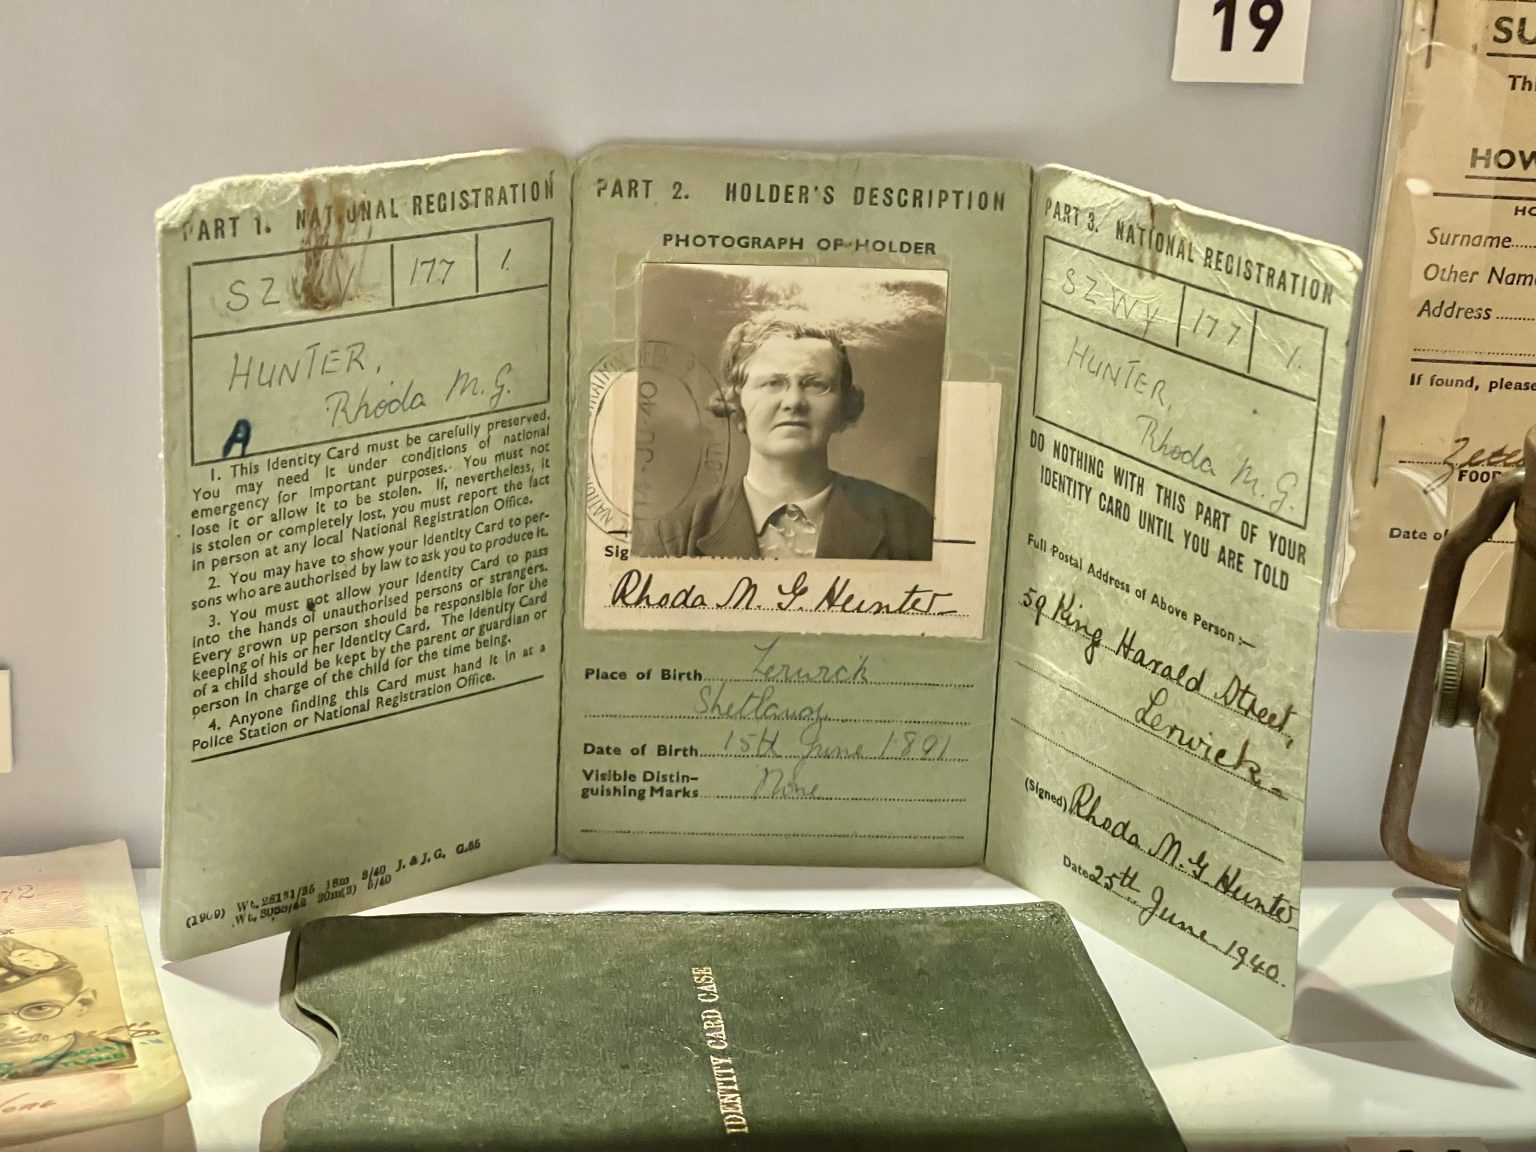 19
PART 1. NATIONAL REGISTRATION
SZ 177 1.
HUNTER,
Rhoda M. G.
A
1. This Identity Card must be carefully preserved.
You may need it under conditions of national
emergency for important purposes. You must not
lose it or allow it to be stolen. If, nevertheless, it
is stolen or completely lost, you must report the fact
in person at any local National Registration Office.
2. You may have to show your Identity Card to per-
sons who are authorised by law to ask you to produce it.
3. You must not allow your Identity Card to pass
into the hands of unauthorised persons or strangers.
Every grown up person should be responsible for the
keeping of his or her Identity Card. The Identity Card
of a child should be kept by the parent or guardian or
person in charge of the child for the time being.
4. Anyone finding this Card must hand it in at a
Police Station or National Registration Office.
J. & J. G.
PART 2. HOLDER'S DESCRIPTION
PHOTOGRAPH OF HOLDER
Holder
Rhoda M. G. Hunter
Place of Birth Lerwick
Shetland
Date of Birth 15th June 1891
Visible Distin-
guishing Marks None
PART 3. NATIONAL REGISTRATION
SZWY 177 1.
HUNTER,
Rhoda M. G.
DO NOTHING WITH THIS PART OF YOUR
IDENTITY CARD UNTIL YOU ARE TOLD
Full Postal Address of Above Person :—
59 King Harald Street,
Lerwick
(Signed) Rhoda M. G Hunter
Date 25th June 1940.
IDENTITY CARD CASE
SU
HOW
Surname
Other Nam
Address
If found, please
FOOD
Date of